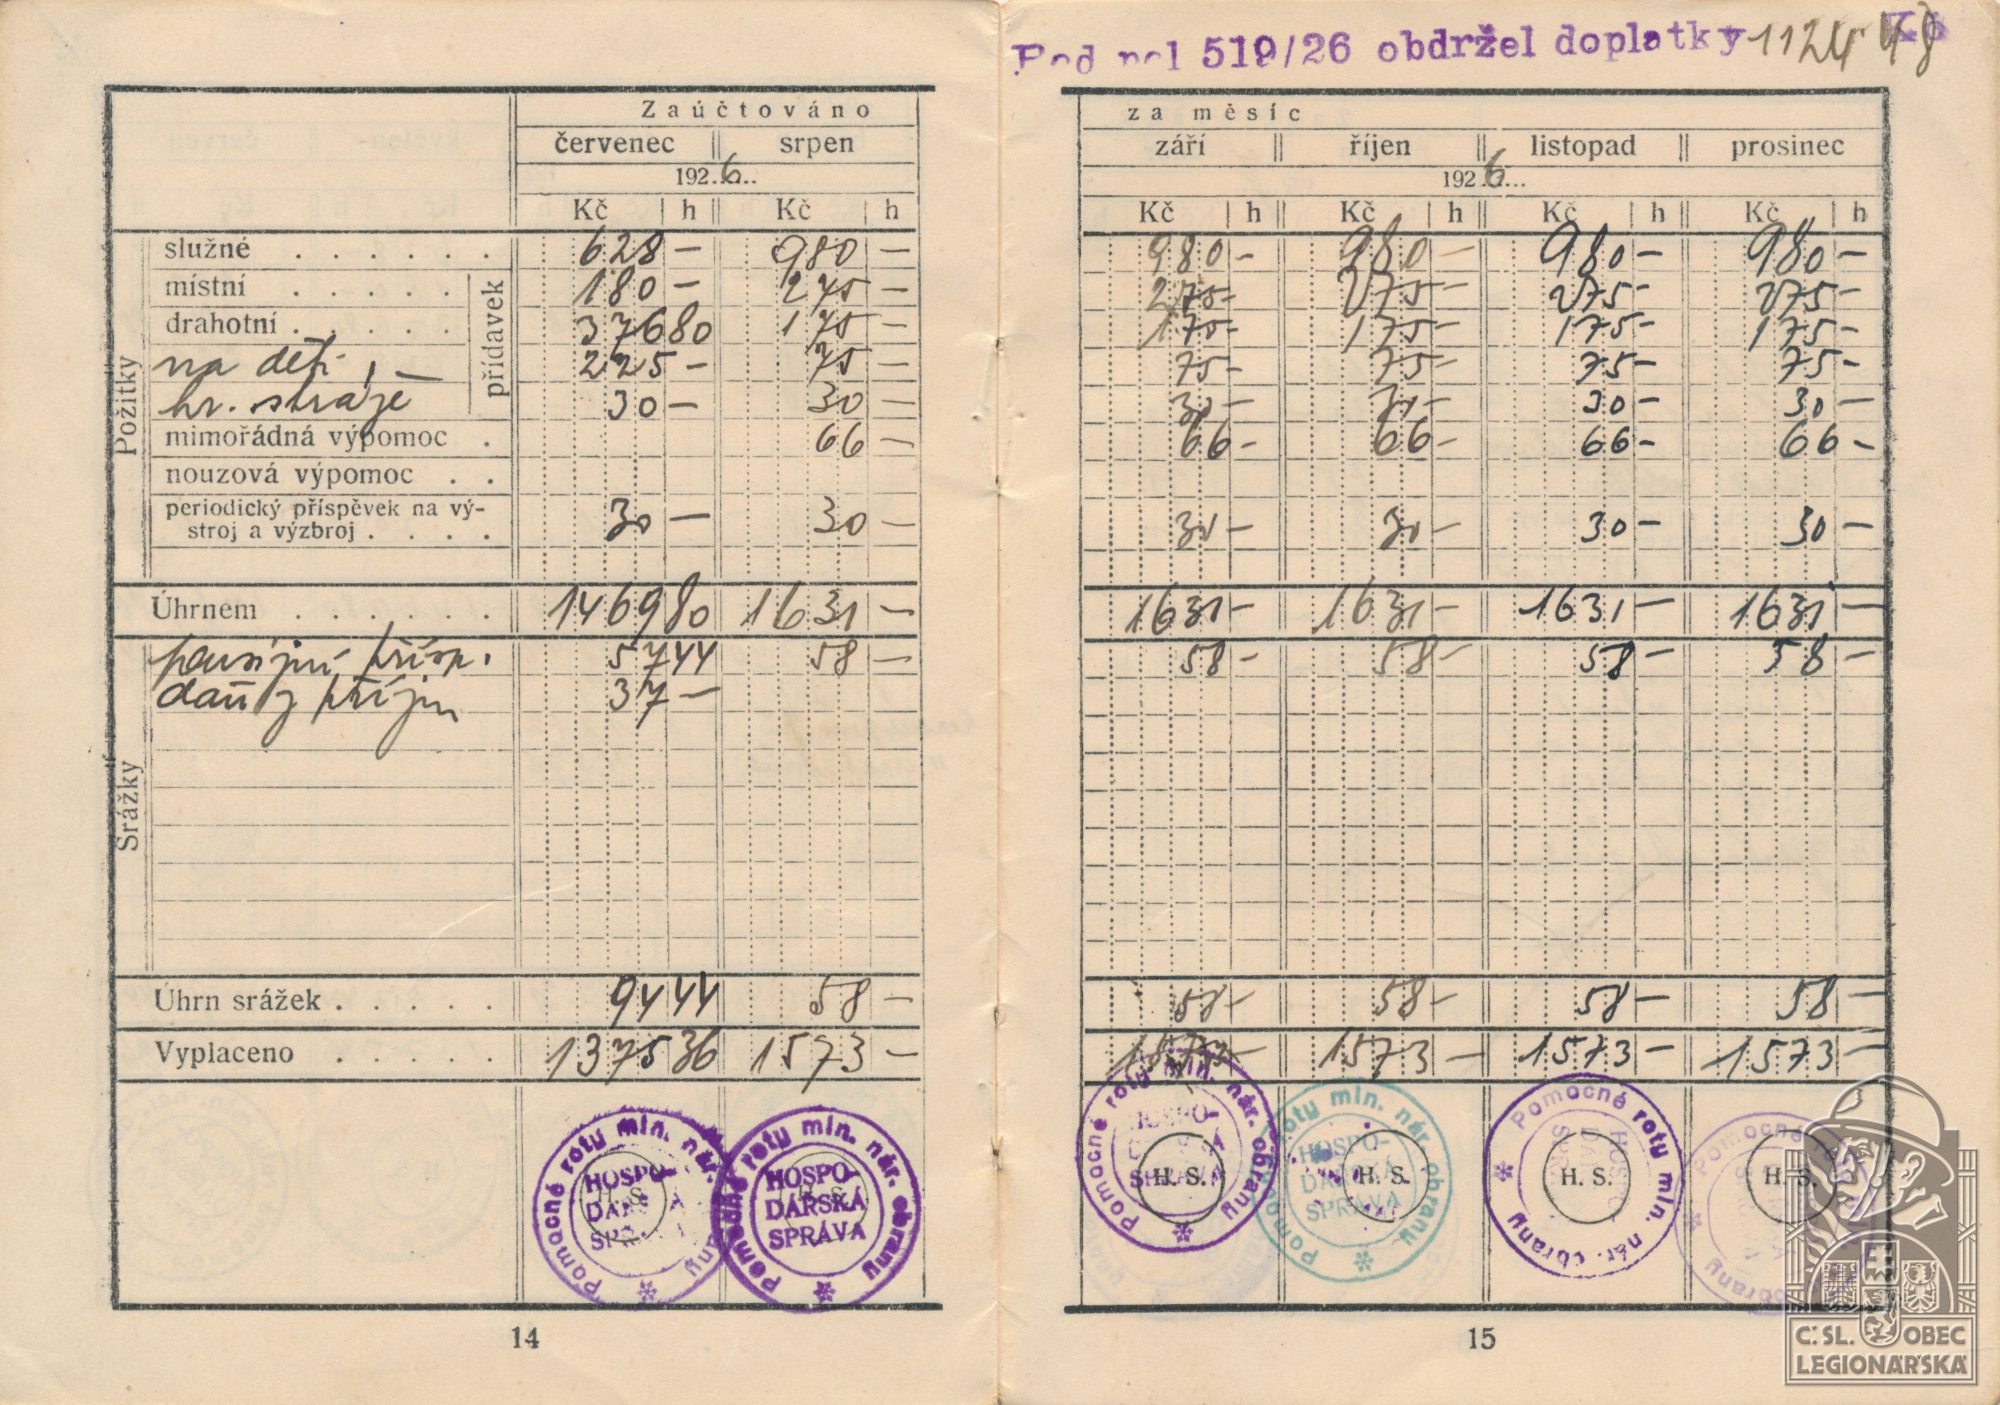 Zaúčtováno
červenec srpen
192 6
Kč h Kč h
Požitky
přídavek
služné 628 — 980 —
místní 180 — 275 —
drahotní 376 80 175 —
na děti 225 — 75 —
hr. stráže 30 — 30 —
mimořádná výpomoc 66 —
nouzová výpomoc
periodický příspěvek na vý-
stroj a výzbroj 30 — 30 —
Úhrnem 1469 80 1631 —
Srážky
pensijní přísp. 57 44 58 —
daň z příjm 37 —
Úhrn srážek 94 44 58 —
Vyplaceno 1375 36 1573 —
Pomocné roty min. nár. obrany
HOSPO-
DÁŘSKÁ
SPRÁVA
H. S.
Pomocné roty min. nár. obrany
HOSPO-
DÁŘSKÁ
SPRÁVA
14
Pod pol 519/26 obdržel doplatky 1124 48 Kč
za měsíc
září říjen listopad prosinec
192 6
Kč h Kč h Kč h Kč h
980 — 980 — 980 — 980 —
275 — 275 — 275 — 275 —
175 — 175 — 175 — 175 —
75 — 75 — 75 — 75 —
30 — 30 — 30 — 30 —
66 — 66 — 66 — 66 —
30 — 30 — 30 — 30 —
1631 — 1631 — 1631 — 1631 —
58 — 58 — 58 — 58 —
58 — 58 — 58 — 58 —
1573 — 1573 — 1573 — 1573 —
Pomocné roty min. nár. obrany
HOSPO-
SPRÁVA
H. S.
Pomocné roty min. nár. obrany
HOSPO-
DÁŘSKÁ
SPRÁVA
H. S.
Pomocné roty min. nár. obrany
H. S.
Pomocné obrany
H. S.
15
Č. SL. OBEC
LEGIONÁŘSKÁ